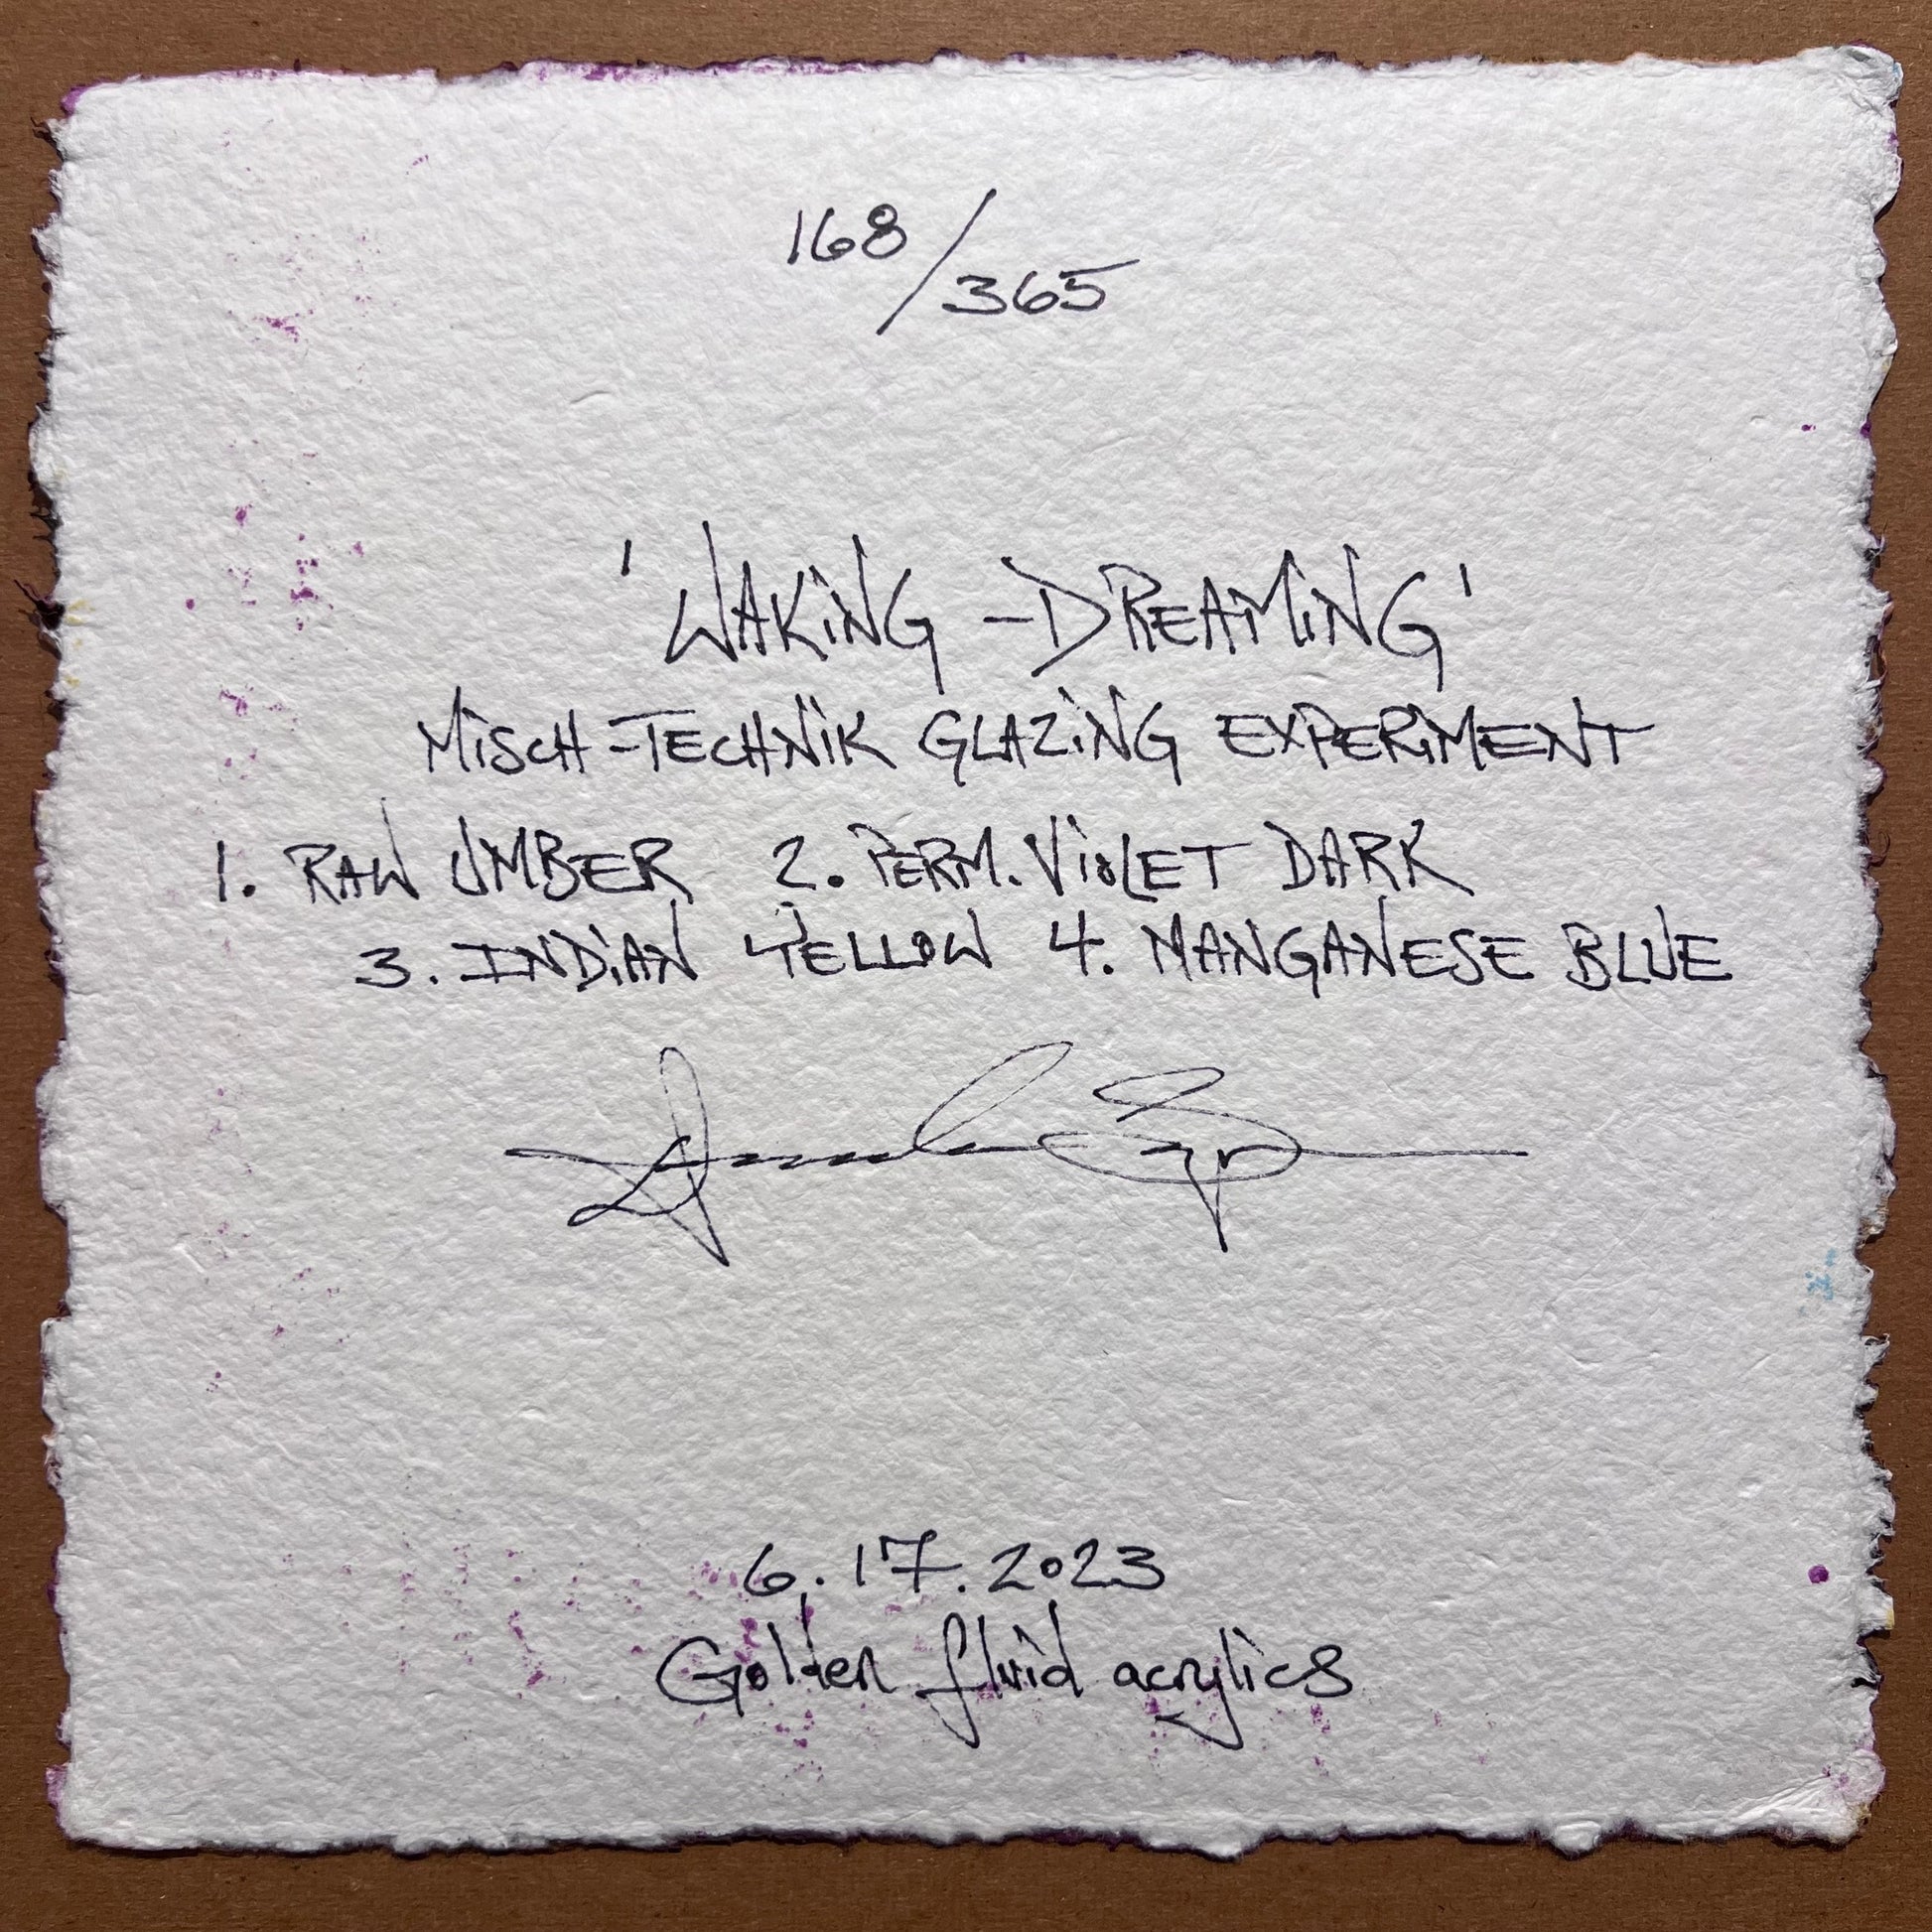 168/365
'WAKiNG -DREAMiNG'
MiSCH-TECHNiK GLAZiNG EXPERiMENT
1. RAW UMBER 2. PERM. ViOLET DARK
3. INDiAN YELLOW 4. MANGANESE BLUE
6.17.2023
Golden fluid acrylics